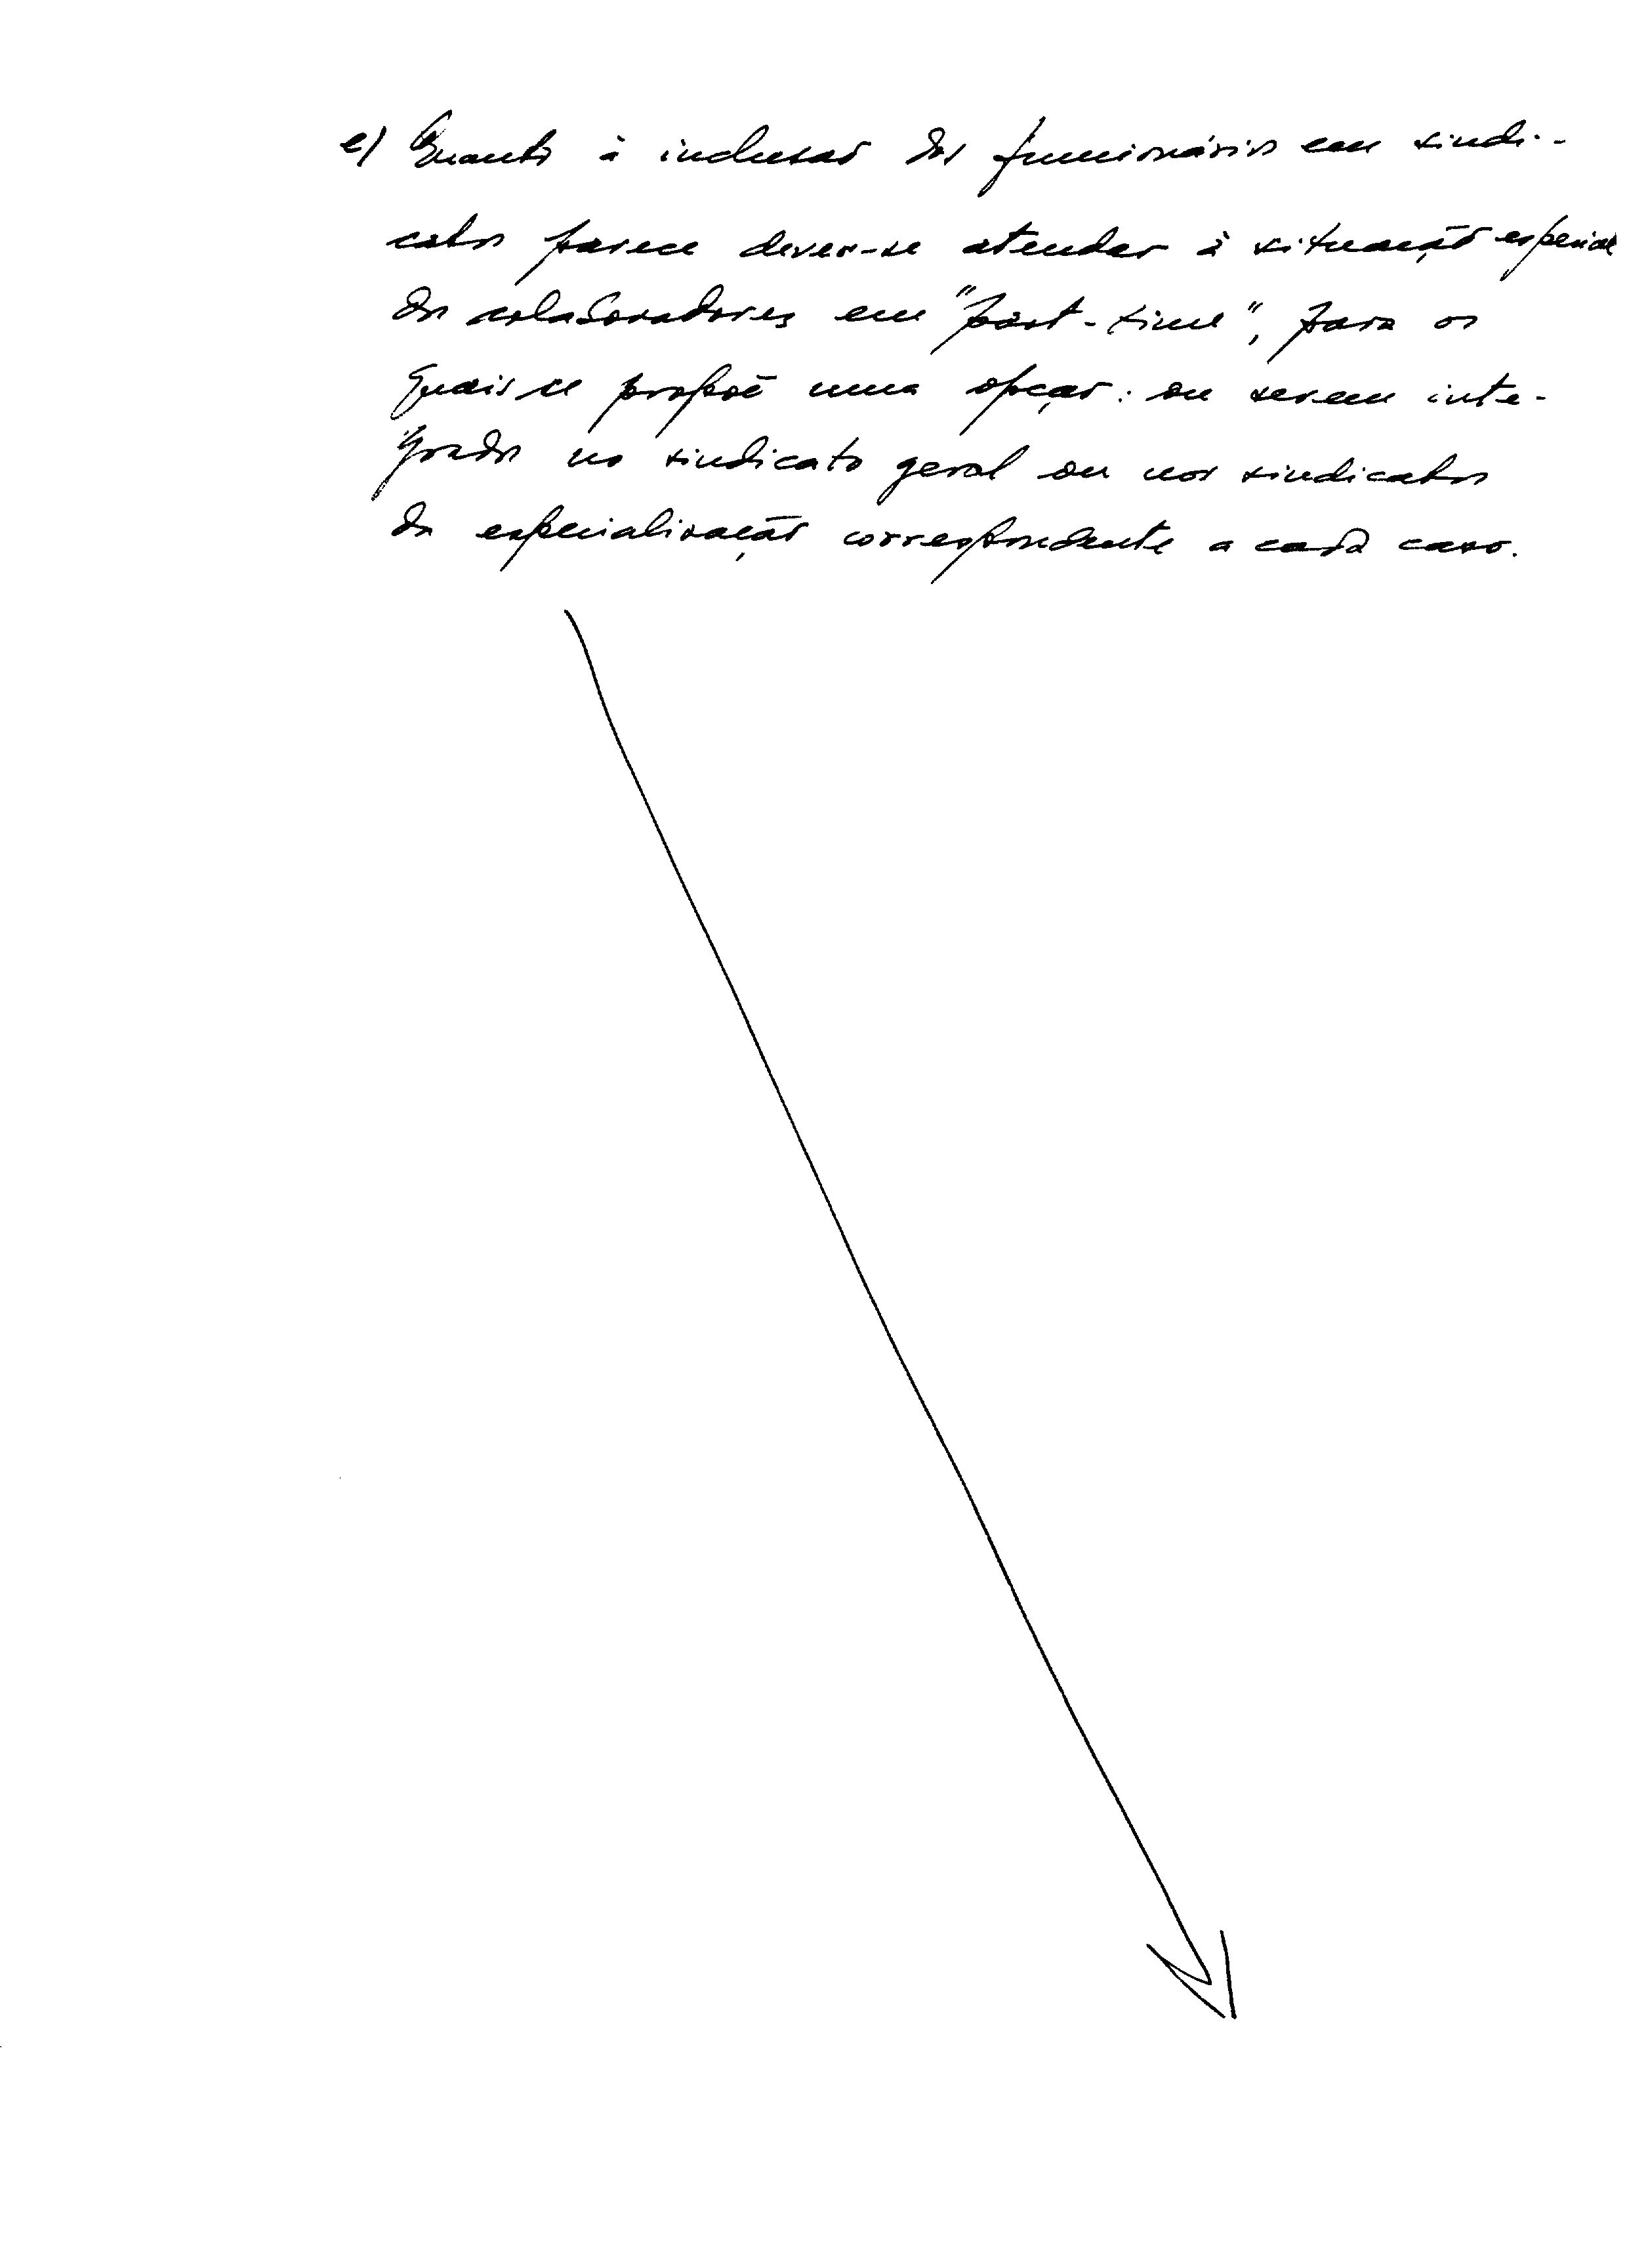 e) Quanto à inclusão dos funcionários em sindi-
catos parece dever-se atender à situação especial
dos colaboradores em "part-time", para os
quais se propõe uma opção: ou serem inte-
grados no sindicato geral ou nos sindicatos
da especialização correspondente a cada caso.